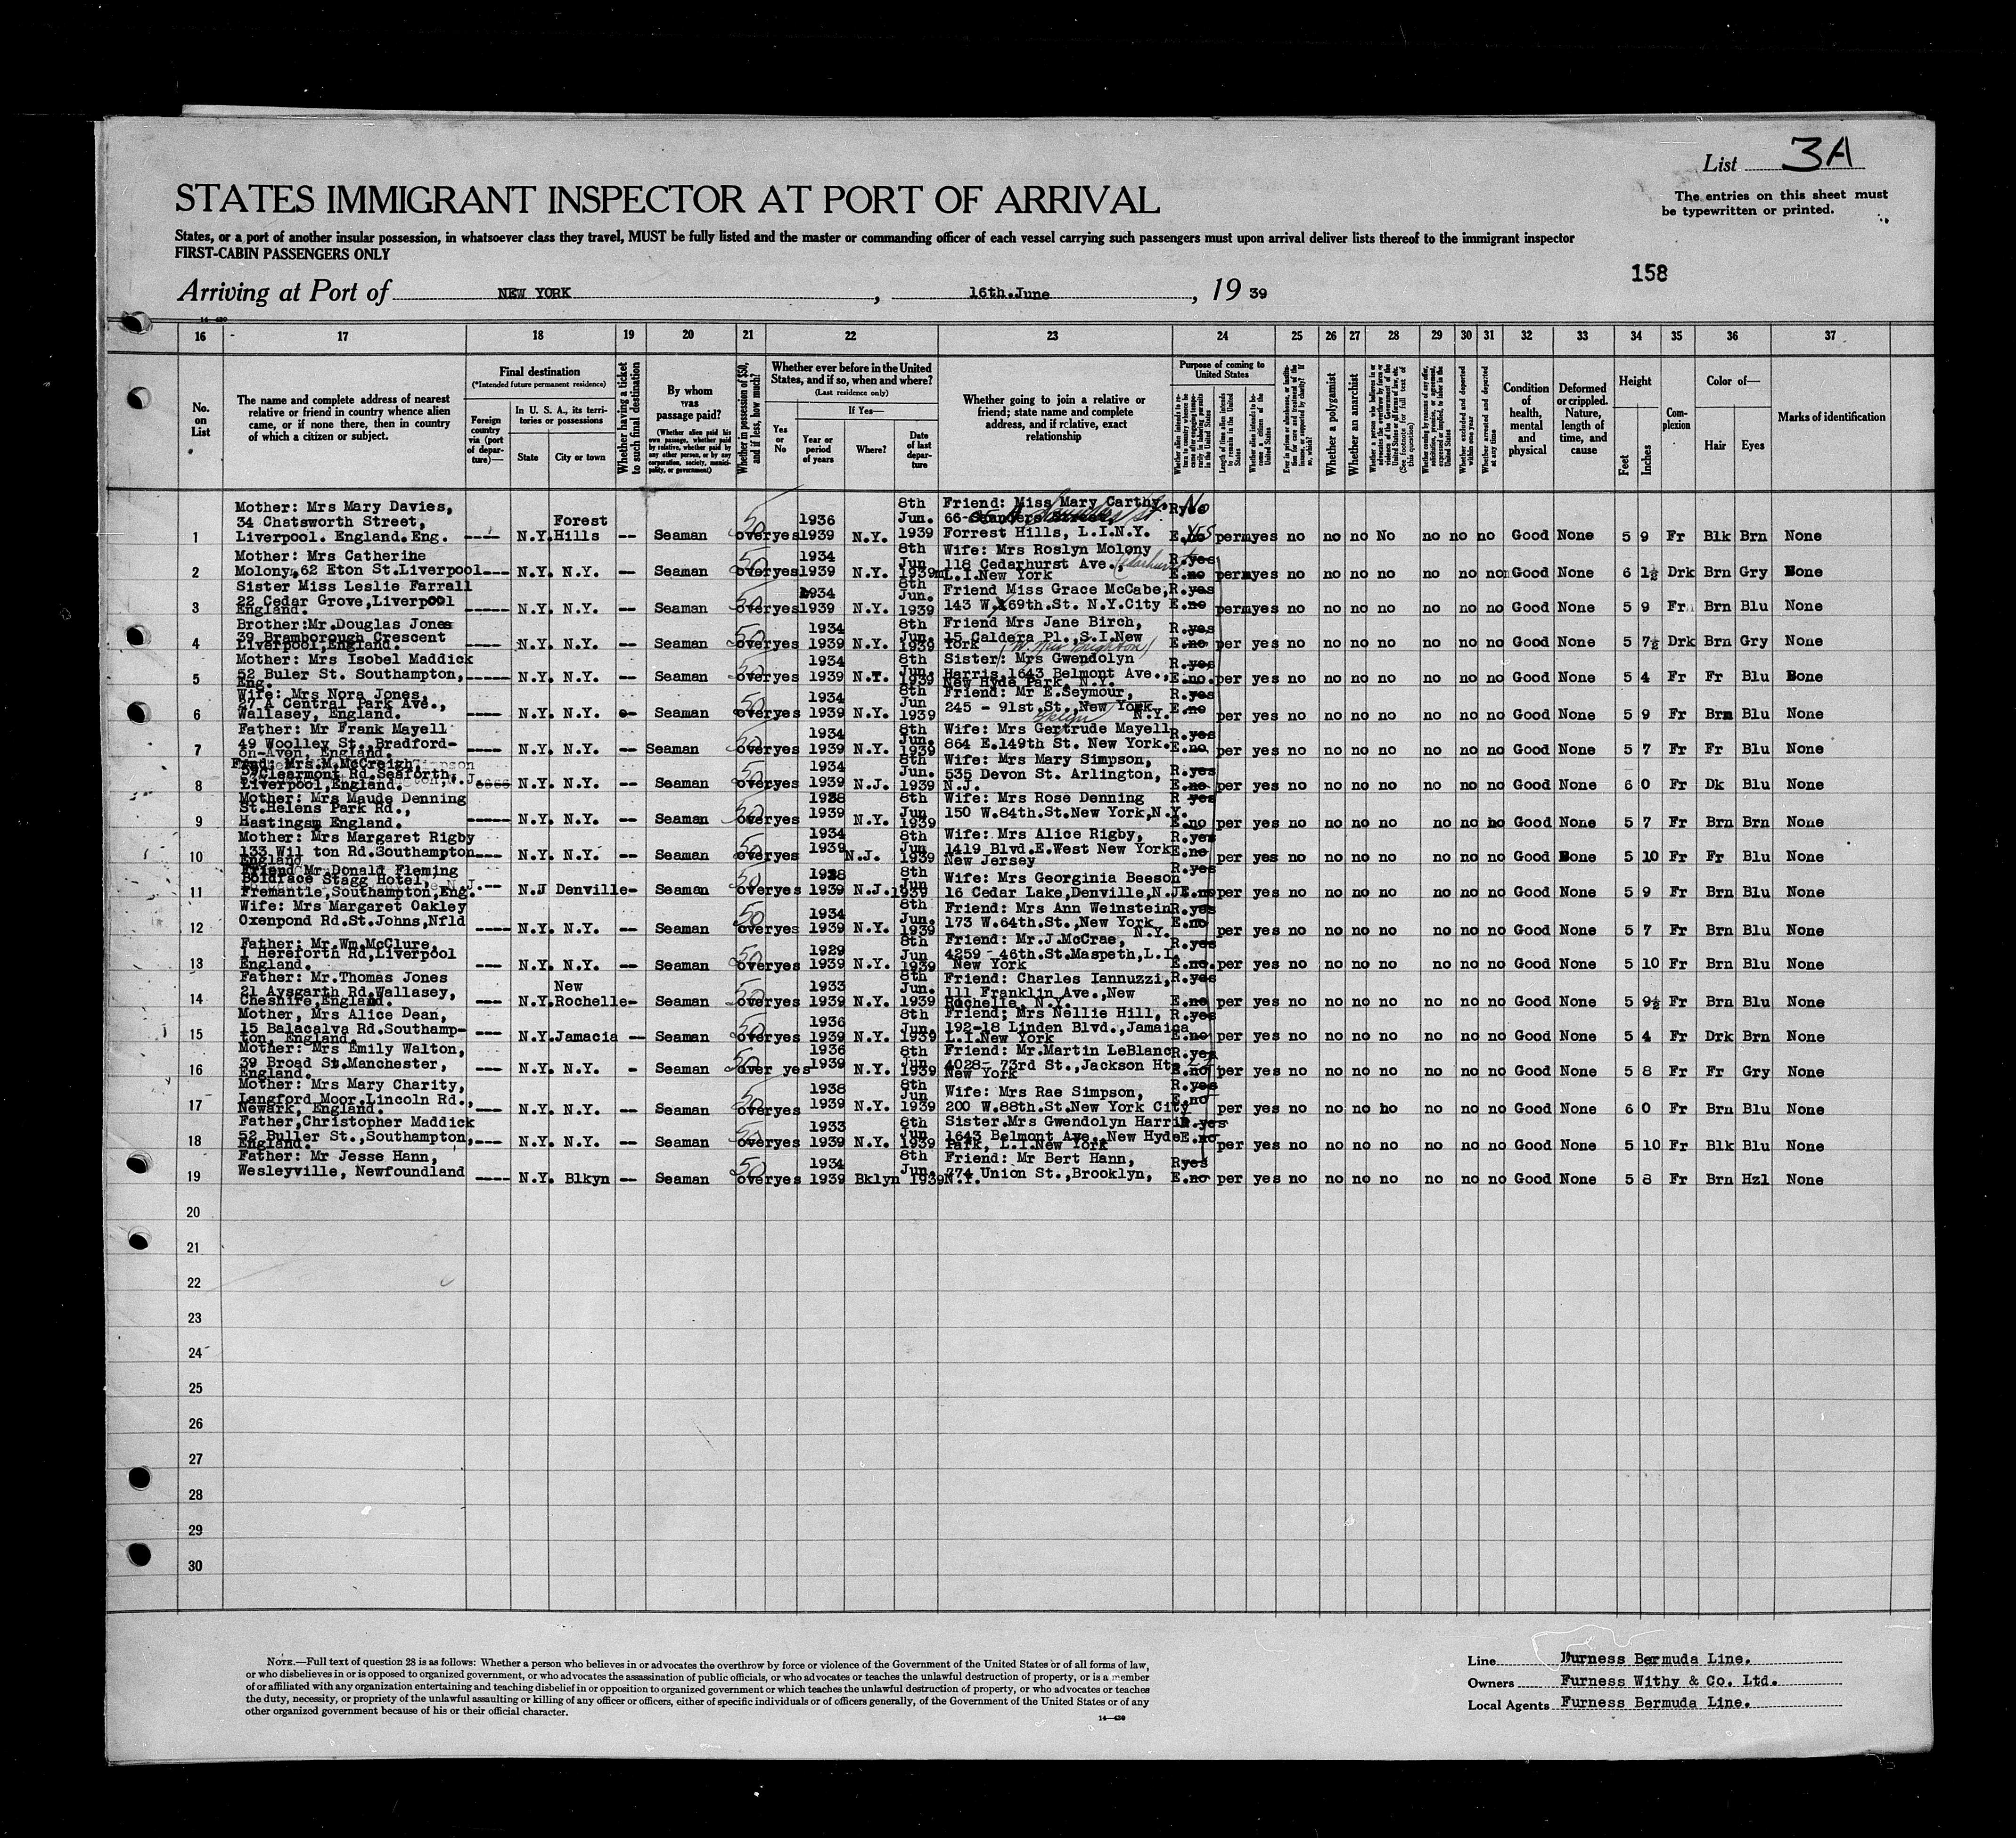 List 3A
STATES IMMIGRANT INSPECTOR AT PORT OF ARRIVAL
The entries on this sheet must
be typewritten or printed.
States, or a port of another insular possession, in whatsoever class they travel, MUST be fully listed and the master or commanding officer of each vessel carrying such passengers must upon arrival deliver lists thereof to the immigrant inspector
FIRST-CABIN PASSENGERS ONLY
158
Arriving at Port of NEW YORK, 16th.June, 1939
14-430
16 17 18 19 20 21 22 23 24 25 26 27 28 29 30 31 32 33 34 35 36 37
No. on List
The name and complete address of nearest
relative or friend in country whence alien
came, or if none there, then in country
of which a citizen or subject.
Final destination
(*Intended future permanent residence)
Foreign country via (port of departure)—
In U. S. A., its territories or possessions
State
City or town
Whether having a ticket to such final destination
By whom was passage paid?
(Whether alien paid his own passage, whether paid by relative, whether paid by any other person, or by any corporation, society, municipality, or government)
Whether in possession of $50, and if less, how much?
Whether ever before in the United
States, and if so, when and where?
(Last residence only)
Yes or No
If Yes—
Year or period of years
Where?
Date of last departure
Whether going to join a relative or
friend; state name and complete
address, and if relative, exact
relationship
Purpose of coming to United States
Length of time alien intends to remain in the United States
Whether alien intends to become a citizen of the United States
Whether a polygamist
Whether an anarchist
Whether excluded and deported within one year
Whether arrested and deported at any time
Condition of health, mental and physical
Deformed or crippled. Nature, length of time, and cause
Height
Feet
Inches
Complexion
Color of—
Hair
Eyes
Marks of identification
1 Mother: Mrs Mary Davies, 34 Chatsworth Street, Liverpool. England. Eng. ---- N.Y. Forest Hills -- Seaman 50 over yes 1936 1939 N.Y. 8th Jun. 1939 Friend: Miss Mary Carthy, 66- Forrest Hills, L.I.N.Y. No R yes YES E.no perm yes no no no No no no no Good None 5 9 Fr Blk Brn None
2 Mother: Mrs Catherine Molony, 62 Eton St.Liverpool --- N.Y. N.Y. -- Seaman 50 over yes 1934 1939 N.Y. 8th Jun 1939 Wife: Mrs Roslyn Molony 118 Cedarhurst Ave., Cedarhurst L.I.New York R.yes E.no perm yes no no no no no no no Good None 6 1½ Drk Brn Gry None
3 Sister Miss Leslie Farrall 22 Cedar Grove,Liverpool England. ----- N.Y. N.Y. -- Seaman 50 over yes 1934 1939 N.Y. 8th Jun. 1939 Friend Miss Grace McCabe, 143 W.69th.St. N.Y.City R.yes E.no perm yes no no no no no no no Good None 5 9 Fr Brn Blu None
4 Brother:Mr.Douglas Jones 39 Bramborough Crescent Liverpool,England. ---- N.Y. N.Y. -- Seaman 50 over yes 1934 1939 N.Y. 8th Jun. 1939 Friend Mrs Jane Birch, 15 Caldera Pl.,S.I.New York (W. New Brighton) R.yes E.no per yes no no no no no no no Good None 5 7½ Drk Brn Gry None
5 Mother: Mrs Isobel Maddick 52 Buler St. Southampton, Eng. ----- N.Y. N.Y. -- Seaman 50 over yes 1934 1939 N.Y. 8th Jun. 1939 Sister: Mrs Gwendolyn Harris,1643 Belmont Ave., New Hyde Park, N.Y. R.yes E.no. per yes no no no no no no no Good None 5 4 Fr Fr Blu None
6 Wife: Mrs Nora Jones, 27 A Central Park Ave., Wallasey, England. ---- N.Y. N.Y. -- Seaman 50 over yes 1934 1939 N.Y. 8th Jun 1939 Friend: Mr E.Seymour, 245 - 91st.St.,New York Bklyn N.Y. R.yes E.no per yes no no no no no no no Good None 5 9 Fr Brn Blu None
7 Father: Mr Frank Mayell 49 Woolley St.,Bradford-on-Aven, England. ---- N.Y. N.Y. -- Seaman 50 over yes 1934 1939 N.Y. 8th Jun. 1939 Wife: Mrs Gertrude Mayell 864 E.149th St. New York. R.yes E.no per yes no no no no no no no Good None 5 7 Fr Fr Blu None
8 Mrs.M.McCreigh Clearmont Rd.Seaforth, Liverpool,England. N.Y. N.Y. -- Seaman 50 over yes 1934 1939 N.J. 8th Jun. 1939 Wife: Mrs Mary Simpson, 535 Devon St. Arlington, N.J. R.yes E.no per yes no no no no no no no Good None 6 0 Fr Dk Blu None
9 Mother: Mrs Maude Denning St.Helens Park Rd., Hastings England. ----- N.Y. N.Y. -- Seaman 50 over yes 1938 1939 N.Y. 8th Jun 1939 Wife: Mrs Rose Denning 150 W.84th.St.New York,N.Y. R yes E.no per yes no no no no no no no Good None 5 7 Fr Brn Brn None
10 Mother: Mrs Margaret Rigby 133 Wil ton Rd.Southampton England ---- N.Y. N.Y. -- Seaman 50 over yes 1934 1939 N.J. 8th Jun 1939 Wife: Mrs Alice Rigby, 1419 Blvd.E.West New York New Jersey R.yes E.no per yes no no no no no no no Good None 5 10 Fr Fr Blu None
11 Friend Mr Donald Fleming Boldface Stagg Hotel, Fremantle,Southampton,Eng. --- N.J Denville- Seaman 50 over yes 1938 1939 N.J. 8th Jun 1939 Wife: Mrs Georginia Beeson 16 Cedar Lake,Denville,N.J R.yes E.no per yes no no no no no no no Good None 5 9 Fr Brn Blu None
12 Wife: Mrs Margaret Oakley Oxenpond Rd.St.Johns,Nfld ---- N.Y. N.Y. -- Seaman 50 over yes 1934 1939 N.Y. 8th Jun. 1939 Friend: Mrs Ann Weinstein 173 W.64th.St.,New York N.Y. R.yes E.no per yes no no no no no no no Good None 5 7 Fr Brn Blu None
13 Father: Mr.Wm.McClure, 1 Hereforth Rd,Liverpool England. --- N.Y. N.Y. -- Seaman 50 over yes 1929 1939 N.Y. 8th Jun 1939 Friend: Mr.J.McCrae, 4259 -46th.St.Maspeth,L.I. New York R.yes E.no. per yes no no no no no no no Good None 5 10 Fr Brn Blu None
14 Father: Mr.Thomas Jones 21 Aysgarth Rd.Wallasey, Cheshire,England. --- N.Y. New Rochelle- Seaman 50 over yes 1933 1939 N.Y. 8th Jun. 1939 Friend: Charles Iannuzzi, 111 Franklin Ave.,New Rochelle, N.Y. R.yes E.no per yes no no no no no no no Good None 5 9½ Fr Brn Blu None
15 Mother, Mrs Alice Dean, 15 Balacalva Rd.Southampton, England. --- N.Y. Jamacia -- Seaman 50 over yes 1936 1939 N.Y. 8th Jun. 1939 Friend; Mrs Nellie Hill, 192-18 Linden Blvd.,Jamaica L.I.New York R.yes E.no per yes no no no no no no no Good None 5 4 Fr Drk Brn None
16 Mother: Mrs Emily Walton, 39 Broad St.Manchester, England. --- N.Y. N.Y. - Seaman 50 over yes 1936 1939 N.Y. 8th Jun 1939 Friend: Mr.Martin LeBlanc 4028- 73rd St.,Jackson Hts New York R.yes E.no per yes no no no no no no no Good None 5 8 Fr Fr Gry None
17 Mother: Mrs Mary Charity, Langford Moor.Lincoln Rd., Newark, England. --- N.Y. N.Y. -- Seaman 50 over yes 1938 1939 N.Y. 8th Jun 1939 Wife: Mrs Rae Simpson, 200 W.88th.St.New York City R.yes E.no per yes no no no no no no no Good None 6 0 Fr Brn Blu None
18 Father,Christopher Maddick 52 Buller St.,Southampton, England. --- N.Y. N.Y. -- Seaman 50 over yes 1933 1939 N.Y. 8th Jun. 1939 Sister.Mrs Gwendolyn Harris 1643 Belmont Ave., New Hyde Park, L.I.New York R.yes E.no per yes no no no no no no no Good None 5 10 Fr Blk Blu None
19 Father: Mr Jesse Hann, Wesleyville, Newfoundland ---- N.Y. Blkyn -- Seaman 50 over yes 1934 1939 Bklyn 8th Jun. 1939 Friend: Mr Bert Hann, 774 Union St.,Brooklyn, N.Y. Ryes E.no per yes no no no no no no no Good None 5 8 Fr Brn Hzl None
20
21
22
23
24
25
26
27
28
29
30
NOTE.—Full text of question 28 is as follows: Whether a person who believes in or advocates the overthrow by force or violence of the Government of the United States or of all forms of law,
or who disbelieves in or is opposed to organized government, or who advocates the assassination of public officials, or who advocates or teaches the unlawful destruction of property, or is a member
of or affiliated with any organization entertaining and teaching disbelief in or opposition to organized government or which teaches the unlawful destruction of property, or who advocates or teaches
the duty, necessity, or propriety of the unlawful assaulting or killing of any officer or officers, either of specific individuals or of officers generally, of the Government of the United States or of any
other organized government because of his or their official character.
14—430
Line Furness Bermuda Line.
Owners Furness Withy & Co. Ltd.
Local Agents Furness Bermuda Line.